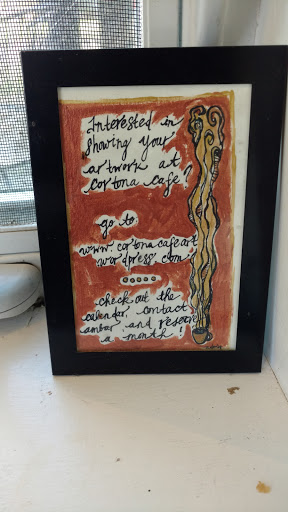 Interested in
showing your
artwork at
cortona cafe?
go to
www.cortonacafeart.
wordpress.com
check out the
calendar, contact
amber, and reserve
a month!